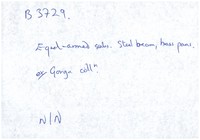 B 3729.
Equal-armed scales. Steel beam, brass pans.
ex Gorga collⁿ.
N/N